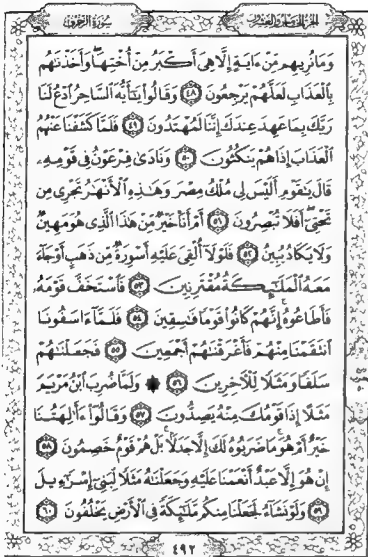 الجزء الخامس والعشرون
سورة الزخرف
وَمَا نُرِيهِم مِّنْ ءَايَةٍ إِلَّا هِىَ أَكْبَرُ مِنْ أُخْتِهَا ۖ وَأَخَذْنَٰهُم
بِٱلْعَذَابِ لَعَلَّهُمْ يَرْجِعُونَ ٤٨ وَقَالُوا۟ يَٰٓأَيُّهَ ٱلسَّاحِرُ ٱدْعُ لَنَا
رَبَّكَ بِمَا عَهِدَ عِندَكَ إِنَّنَا لَمُهْتَدُونَ ٤٩ فَلَمَّا كَشَفْنَا عَنْهُمُ
ٱلْعَذَابَ إِذَا هُمْ يَنكُثُونَ ٥٠ وَنَادَىٰ فِرْعَوْنُ فِى قَوْمِهِۦ
قَالَ يَٰقَوْمِ أَلَيْسَ لِى مُلْكُ مِصْرَ وَهَٰذِهِ ٱلْأَنْهَٰرُ تَجْرِى مِن
تَحْتِىٓ ۖ أَفَلَا تُبْصِرُونَ ٥١ أَمْ أَنَا۠ خَيْرٌ مِّنْ هَٰذَا ٱلَّذِى هُوَ مَهِينٌ
وَلَا يَكَادُ يُبِينُ ٥٢ فَلَوْلَآ أُلْقِىَ عَلَيْهِ أَسْوِرَةٌ مِّن ذَهَبٍ أَوْ جَآءَ
مَعَهُ ٱلْمَلَٰٓئِكَةُ مُقْتَرِنِينَ ٥٣ فَٱسْتَخَفَّ قَوْمَهُۥ
فَأَطَاعُوهُ ۚ إِنَّهُمْ كَانُوا۟ قَوْمًا فَٰسِقِينَ ٥٤ فَلَمَّآ ءَاسَفُونَا
ٱنتَقَمْنَا مِنْهُمْ فَأَغْرَقْنَٰهُمْ أَجْمَعِينَ ٥٥ فَجَعَلْنَٰهُمْ
سَلَفًا وَمَثَلًا لِّلْءَاخِرِينَ ٥٦ وَلَمَّا ضُرِبَ ٱبْنُ مَرْيَمَ
مَثَلًا إِذَا قَوْمُكَ مِنْهُ يَصِدُّونَ ٥٧ وَقَالُوٓا۟ ءَأَٰلِهَتُنَا
خَيْرٌ أَمْ هُوَ ۚ مَا ضَرَبُوهُ لَكَ إِلَّا جَدَلًۢا ۚ بَلْ هُمْ قَوْمٌ خَصِمُونَ ٥٨
إِنْ هُوَ إِلَّا عَبْدٌ أَنْعَمْنَا عَلَيْهِ وَجَعَلْنَٰهُ مَثَلًا لِّبَنِىٓ إِسْرَٰٓءِيلَ
٥٩ وَلَوْ نَشَآءُ لَجَعَلْنَا مِنكُم مَّلَٰٓئِكَةً فِى ٱلْأَرْضِ يَخْلُفُونَ ٦٠
٤٩٢